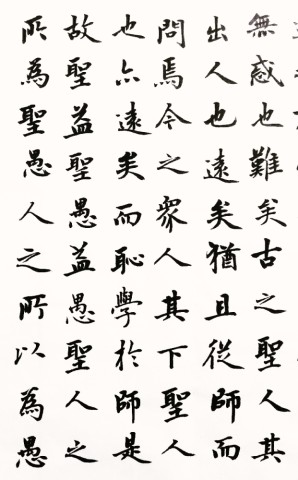 無惑也難矣古之聖人其
出人也遠矣猶且從師而
問焉今之眾人其下聖人
也亦遠矣而恥學於師是
故聖益聖愚益愚聖人之
所為聖愚人之所以為愚